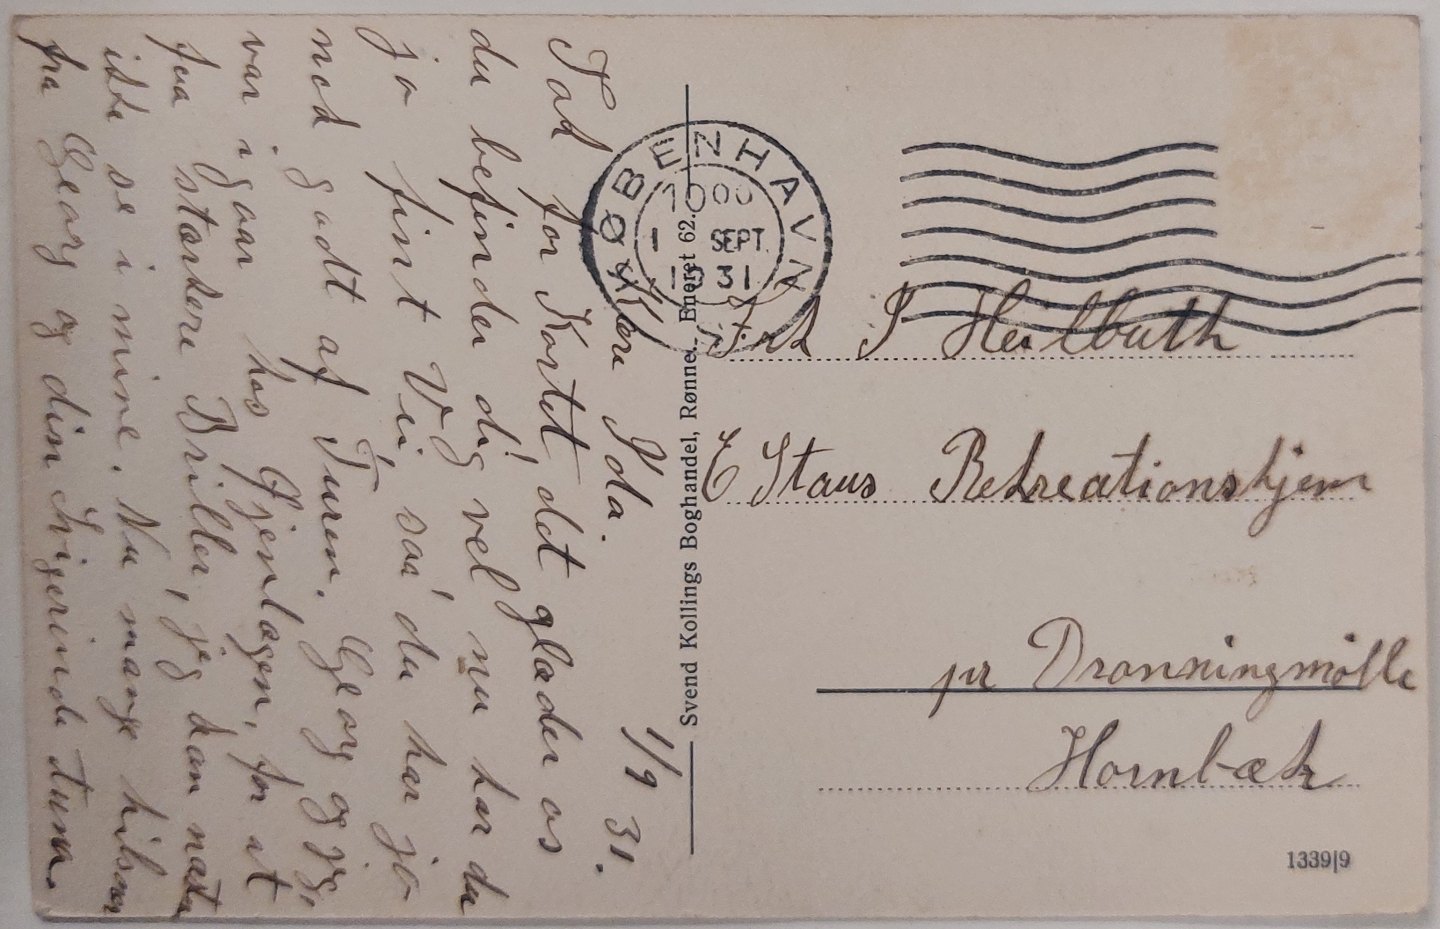 1/9 31.
Kære Ida.
Tak for Kortet, det glæder os
du befinder dig vel nu har du
jo fint Vejr, saa du har jo
nok godt af Turen. Georg og jeg,
var igaar hos Øjenlægen, for at
faa stærkere Briller, jeg kan næsten
ikke se i mine. Nu mange hilsner
fra Georg og din Svigerinde
KØBENHAVN
1000
1 SEPT.
1931
Svend Kollings Boghandel, Rønne. Eneret 62.
Frk I Heilbuth
Rekreationshjem
pr Dronningmølle
Hornbæk
1339|9